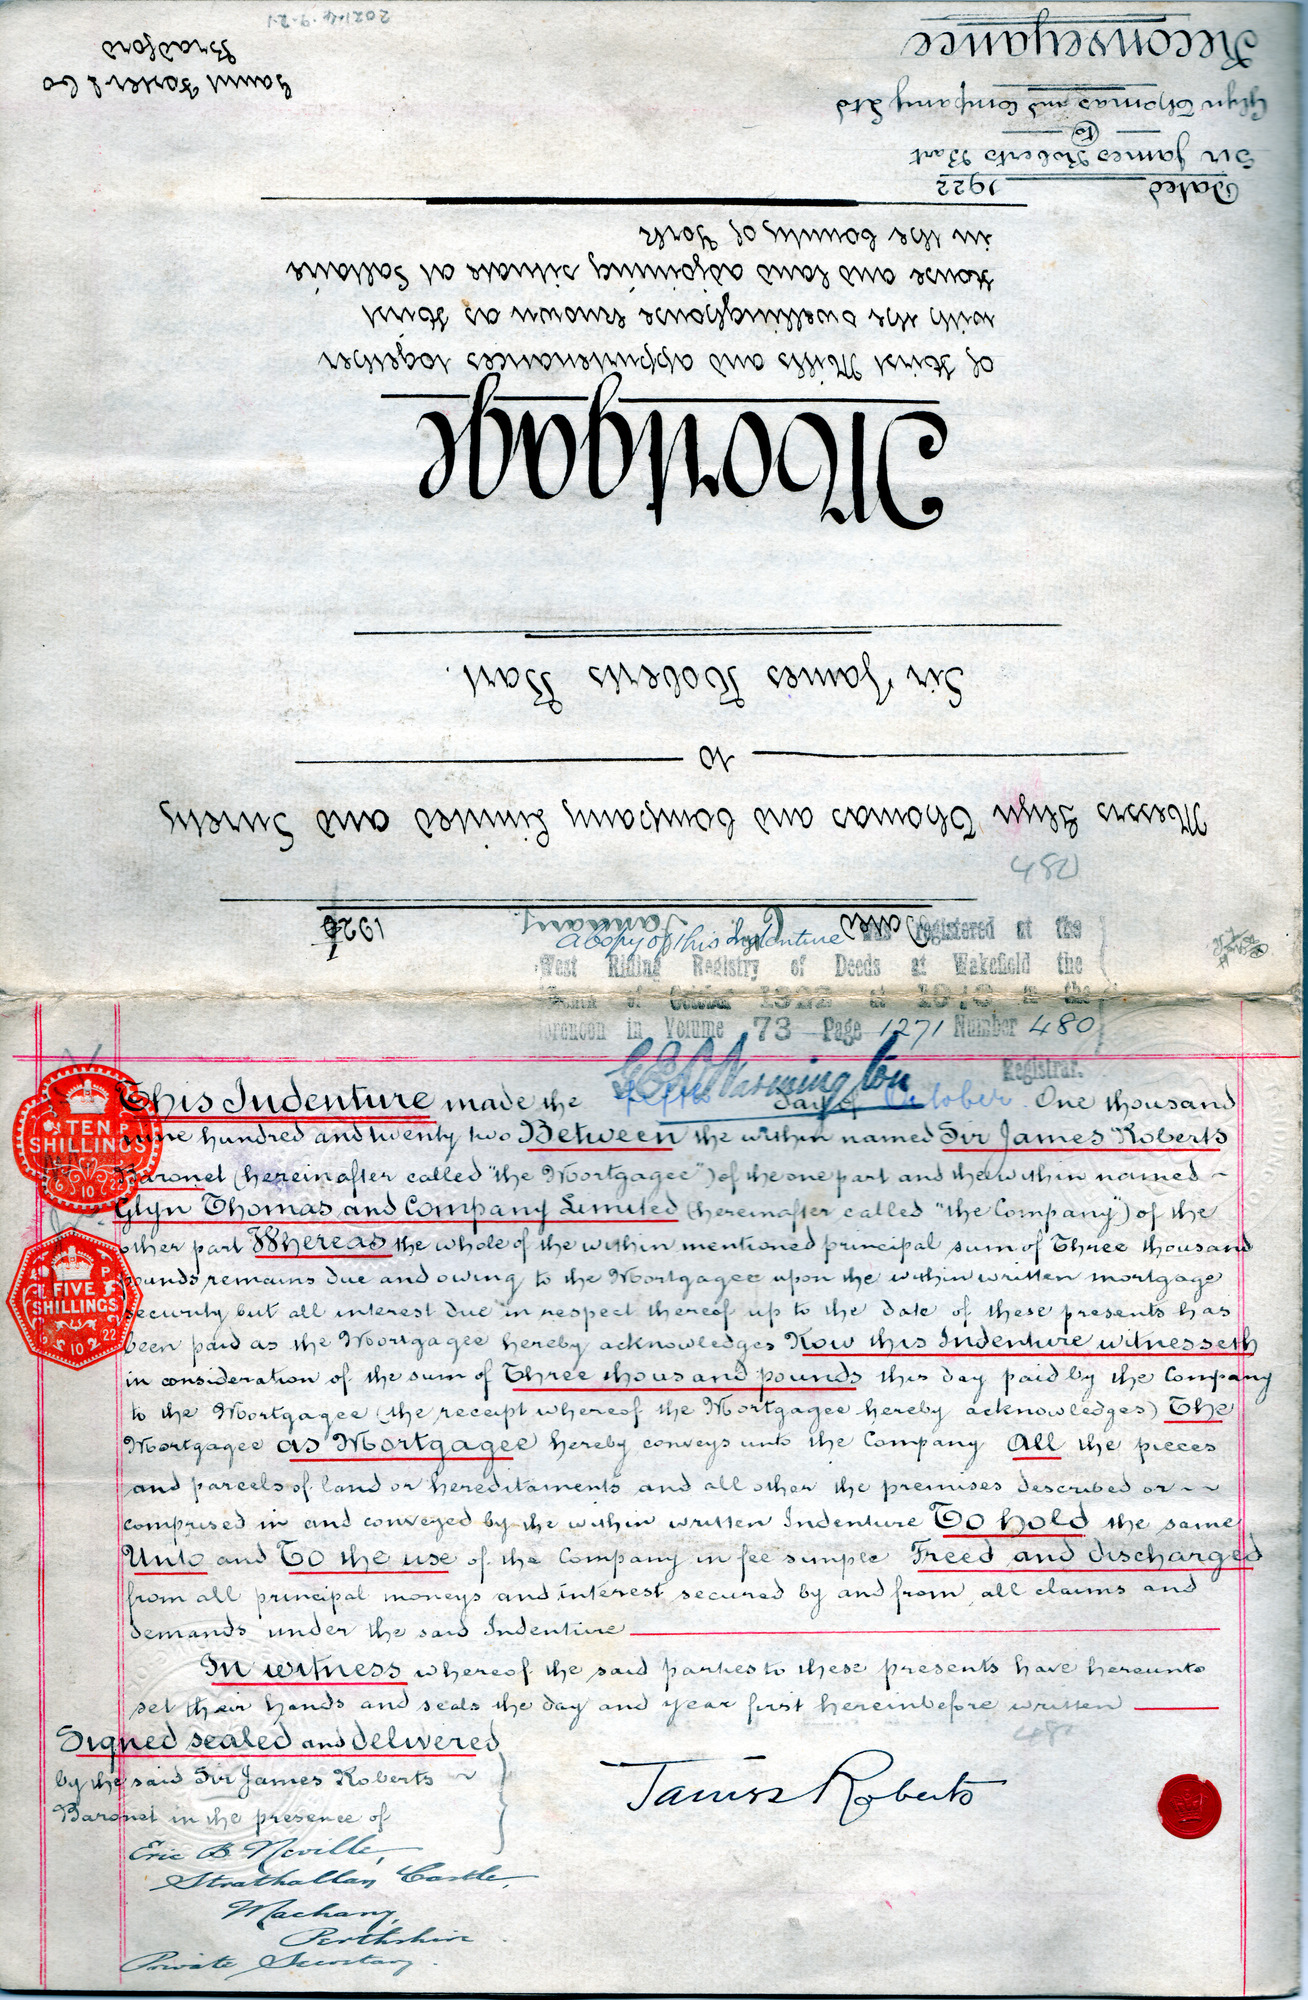 2021.4.9.2.1
Reconveyance
Glyn Thomas and Company Ltd
to
Sir James Roberts Bart
Dated 1922
Saml Fowler & Co
Bradford
in the County of York
House and land adjoining situate at Saltaire
with the dwellinghouse known as Hirst
of Hirst Mills and appurtenances together
Mortgage
Sir James Roberts Bart.
to
Messrs Glyn Thomas and Company Limited and Surety
480
Dated January 192
A copy of this Indenture was registered at the
West Riding Registry of Deeds at Wakefield the
of October 1922 at 10 in the
forenoon in Volume 73 Page 1271 Number 480
Registrar.
This Indenture made the day of October One thousand
nine hundred and twenty two Between the within named Sir James Roberts
Baronet (hereinafter called "the Mortgagee") of the one part and the within named ~
Glyn Thomas and Company Limited (hereinafter called "the Company") of the
other part Whereas the whole of the within mentioned principal sum of Three thousand
pounds remains due and owing to the Mortgagee upon the within written mortgage
security but all interest due in respect thereof up to the date of these presents has
been paid as the Mortgagee hereby acknowledges Now this Indenture witnesseth
in consideration of the sum of Three thousand pounds this day paid by the Company
to the Mortgagee (the receipt whereof the Mortgagee hereby acknowledges) The
Mortgagee as Mortgagee hereby conveys unto the Company All the pieces
and parcels of land or hereditaments and all other the premises described or ~~
comprised in and conveyed by the within written Indenture To hold the same
Unto and To the use of the Company in fee simple Freed and discharged
from all principal moneys and interest secured by and from all claims and
demands under the said Indenture
In witness whereof the said parties to these presents have hereunto
set their hands and seals the day and year first hereinbefore written
TEN
SHILLINGS
6 10 22
FIVE
SHILLINGS
10 22
480
Signed sealed and delivered
by the said Sir James Roberts ~
Baronet in the presence of
James Roberts
Eric B. Neville,
Strathallan Castle,
Machany,
Perthshire.
Private Secretary.